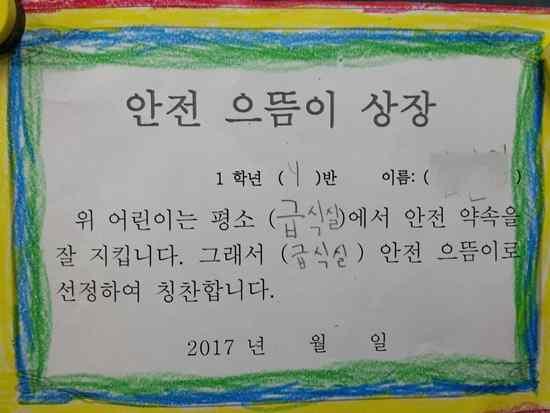 안전 으뜸이 상장
1 학년 (4)반 이름: ( )
위 어린이는 평소 (급식실)에서 안전 약속을
잘 지킵니다. 그래서 (급식실) 안전 으뜸이로
선정하여 칭찬합니다.
2017 년 월 일